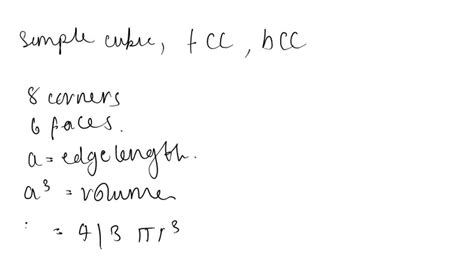 simple cubic, fCC, bCC
8 corners
6 faces.
a = edgelength.
a³ = volume
: = 4/3 πr³